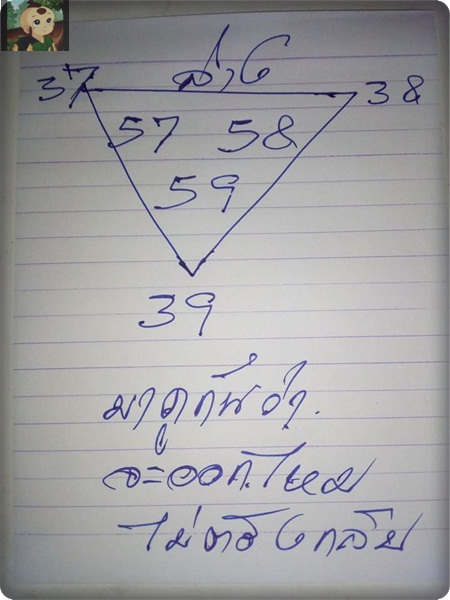 ล่าง
37 38
57 58
59
39
มาดูกันว่า.
จะออกไหม
ไม่ตรงกลับ